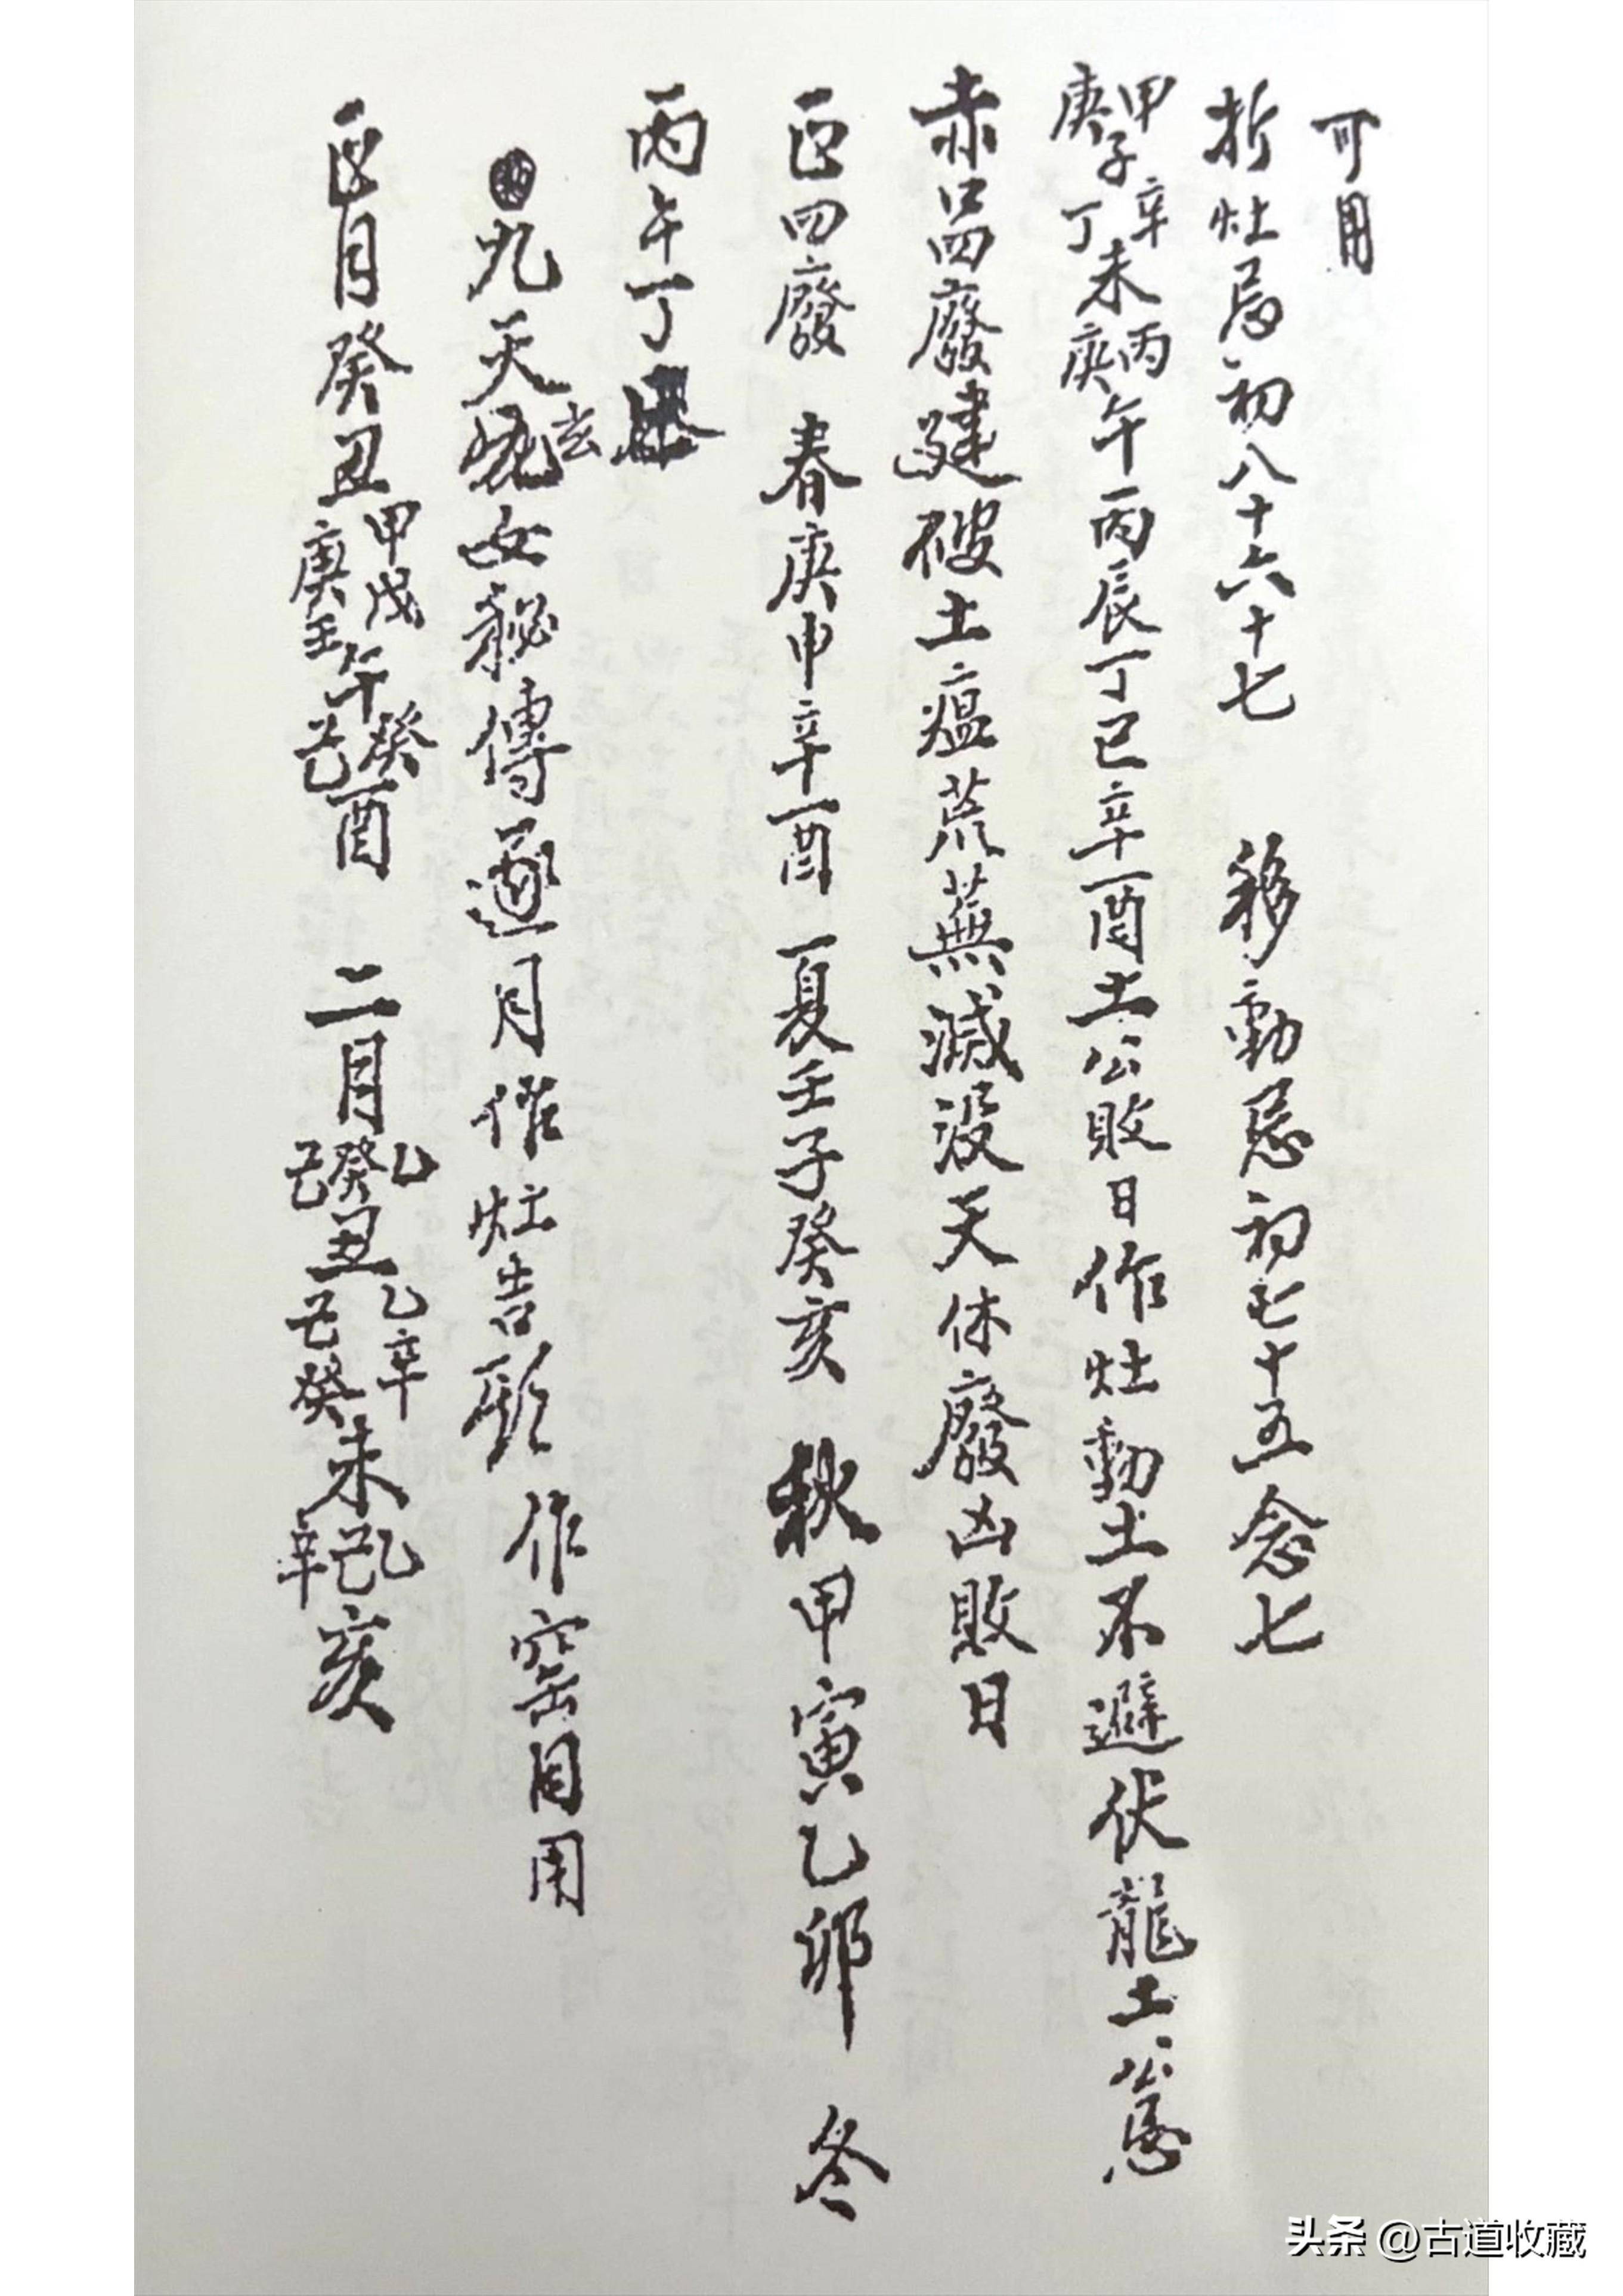 可用
折灶忌初八十六十七 移動忌初七十五念七
甲庚子辛丁未丙庚午丙辰丁巳辛酉土公敗日作灶動土不避伏龍土公忌
赤口四廢建破土瘟荒蕪滅没天休廢凶敗日
正四廢 春庚申辛酉 夏壬子癸亥 秋甲寅乙卯 冬
丙午丁
九天玄女秘傳逐月作灶吉 作窑同用
正月癸丑甲戌庚壬午癸己酉 二月乙癸己丑乙辛己癸未乙己辛亥
头条 @古道收藏